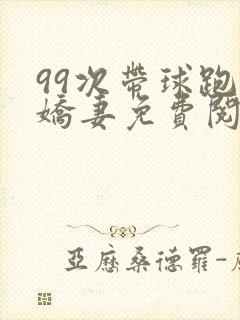 99次帶球跑
嬌妻免費閱
亞歷桑德羅-